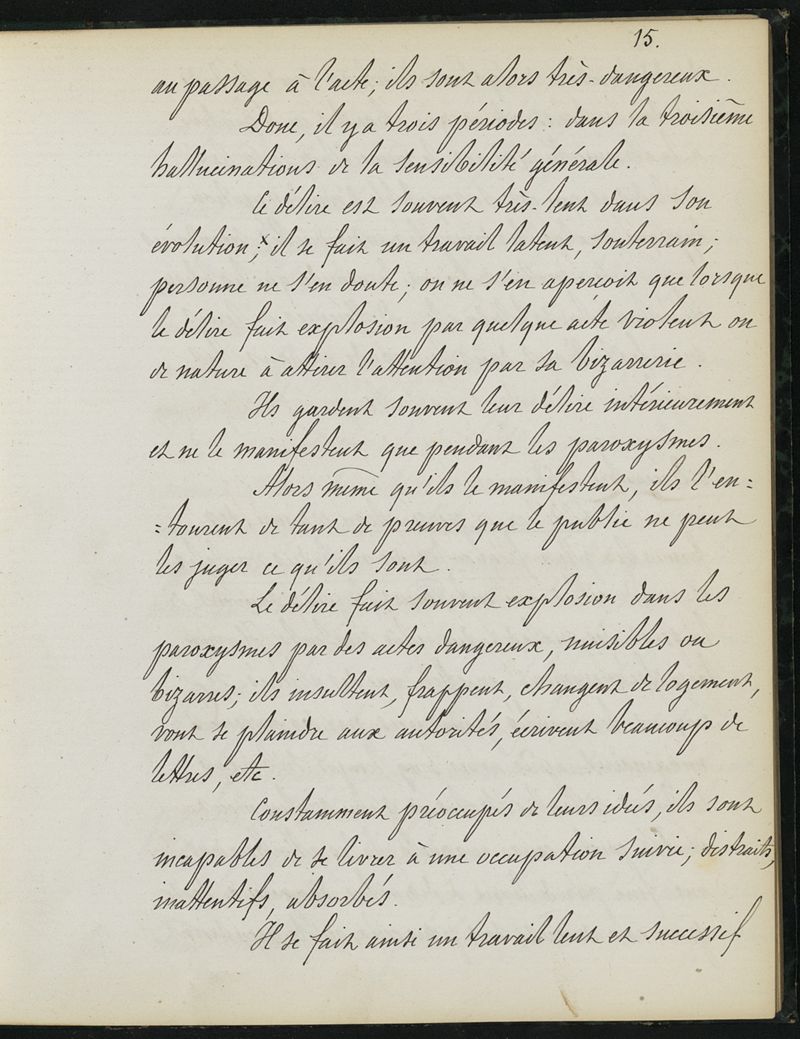 15.
au passage à l'acte; ils sont alors très-dangereux.
Donc, il y a trois périodes: dans la troisième
hallucinations de la sensibilité générale.
Ce délire est souvent très-lent dans son
évolution;× il se fait un travail latent, souterrain;
personne ne s'en doute; on ne s'en aperçoit que lorsque
le délire fait explosion par quelque acte violent ou
de nature à attirer l'attention par sa bizarrerie.
Ils gardent souvent leur délire intérieurement
et ne le manifestent que pendant les paroxysmes.
Alors même qu'ils le manifestent, ils l'en=
=tourent de tant de preuves que le public ne peut
les juger ce qu'ils sont.
Le délire fait souvent explosion dans les
paroxysmes par des actes dangereux, nuisibles ou
bizarres; ils insultent, frappent, changent de logement,
vont se plaindre aux autorités, écrivent beaucoup de
lettres, etc.
Constamment préoccupés de leurs idées, ils sont
incapables de se livrer à une occupation suivie; distraits,
inattentifs, absorbés.
Il se fait ainsi un travail lent et successif